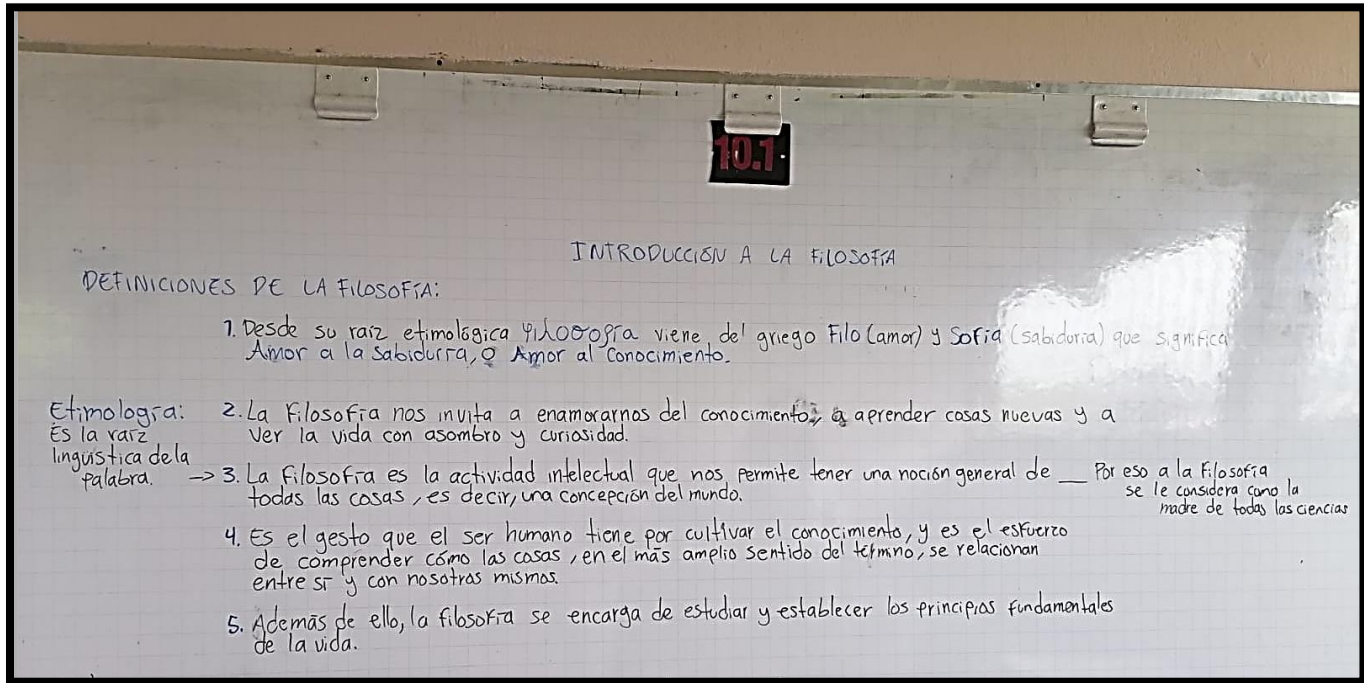 10.1
INTRODUCCIÓN A LA FILOSOFÍA
DEFINICIONES DE LA FILOSOFÍA:
1. Desde su raíz etimológica φιλοσοφία viene del griego Filo (amor) y Sofía (sabiduría) que significa
Amor a la sabiduría, o Amor al conocimiento.
Etimología:
Es la raíz
linguística de la
palabra.
2. La Filosofía nos invita a enamorarnos del conocimiento, a aprender cosas nuevas y a
ver la vida con asombro y curiosidad.
→ 3. La filosofía es la actividad intelectual que nos permite tener una noción general de __ Por eso a la Filosofía
todas las cosas, es decir, una concepción del mundo.
se le considera como la
madre de todas las ciencias
4. Es el gesto que el ser humano tiene por cultivar el conocimiento, y es el esfuerzo
de comprender cómo las cosas, en el más amplio sentido del término, se relacionan
entre sí y con nosotros mismos.
5. Además de ello, la filosofía se encarga de estudiar y establecer los principios fundamentales
de la vida.